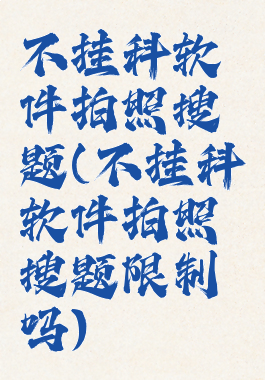 不挂科软
件拍照搜
题(不挂科
软件拍照
搜题限制
吗)